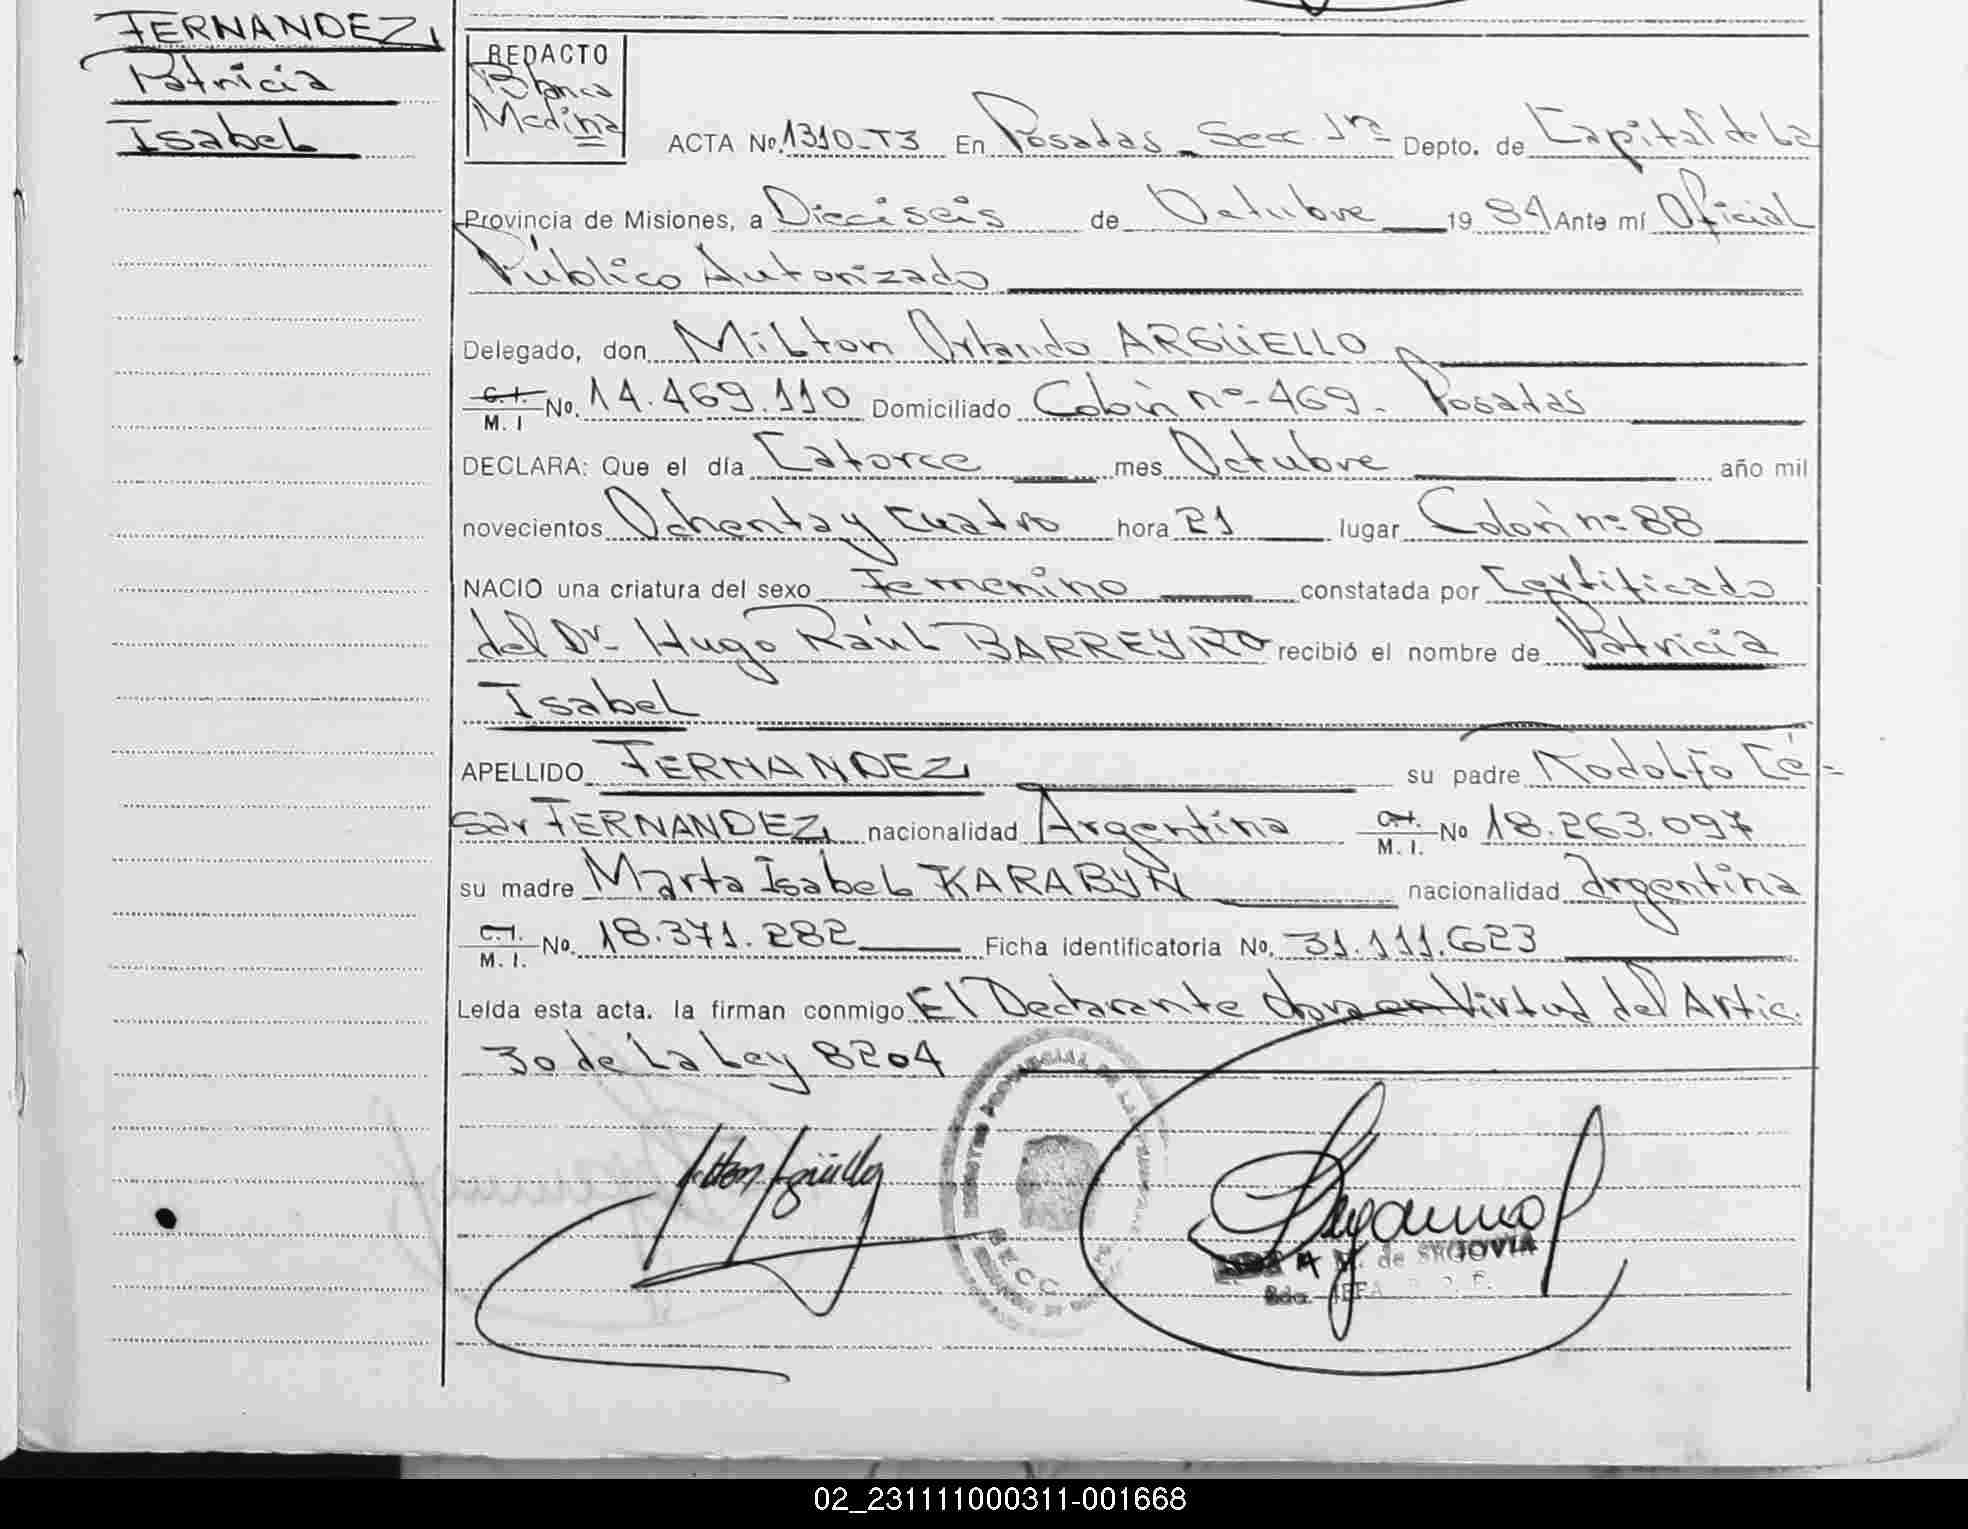 FERNANDEZ,
Patricia
Isabel
REDACTO
Blanca
Medina
ACTA No. 1310-T3 En Posadas - Secc. 1ra Depto. de Capital de La
Provincia de Misiones, a Dieciseis de Octubre 1984 Ante mí Oficial
Público Autorizado
Delegado, don Milton Orlando ARGÜELLO
C.I. M. I No. 14.469.110 Domiciliado Colón nº 469 - Posadas
DECLARA: Que el día Catorce mes Octubre año mil
novecientos Ochenta y cuatro hora 21 lugar Colón nº 88
NACIO una criatura del sexo Femenino constatada por Certificado
del Dr. Hugo Raúl BARREYRO recibió el nombre de Patricia
Isabel
APELLIDO FERNANDEZ su padre Rodolfo Cé-
sar FERNANDEZ, nacionalidad Argentina C.I. M. I. No 18.263.097
su madre Marta Isabel KARABYN nacionalidad Argentina
C.I. M. I. No. 18.371.282 Ficha identificatoria No. 31.111.623
Leída esta acta. la firman conmigo El Declarante en Virtud del Artic.
30 de la Ley 8204
REGISTRO PROVINCIAL DE LAS
SECC.
Milton Argüello
M. de SEGOVIA
JEFA
02_231111000311-001668